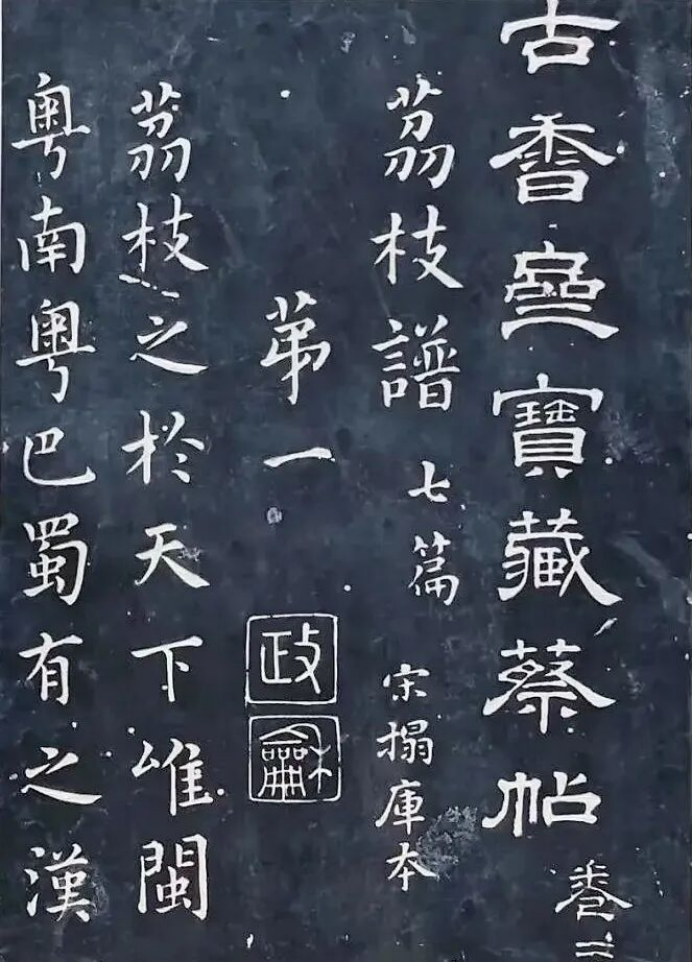 古香齋寶藏蔡帖 卷二
荔枝譜 七篇 宋搨庫本
苐一
政龢
荔枝之於天下唯閩
粤南粤巴蜀有之漢